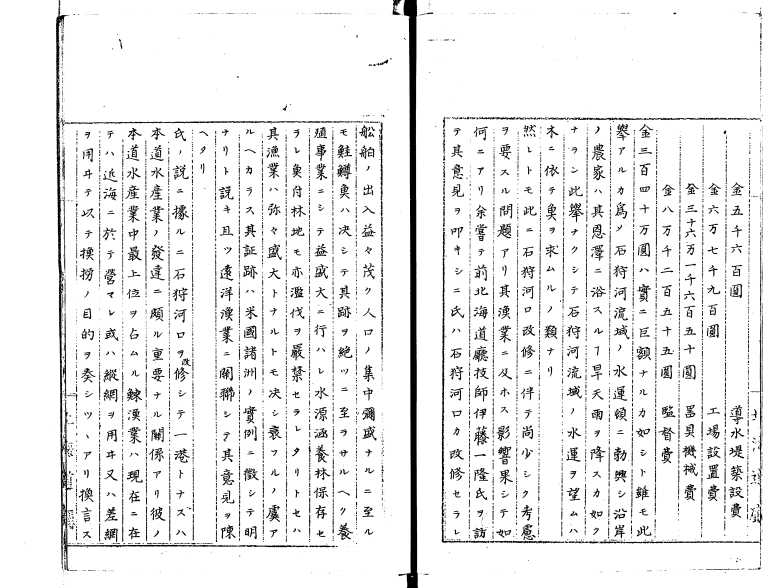 金五千六百圓 導水堤築設費
金六万七千九百圓 工場設置費
金三十六万一千六百五十圓 噐具機械費
金八万千二百五十五圓 監督費
金三百四十万圓ハ實ニ巨額ナルカ如シト雖モ此
擧アルカ爲メ石狩河流域ノ水運頓ニ勃興シ沿岸
ノ農家ハ其恩澤ニ浴スルヿ旱天雨ヲ降スカ如ク
ナラン此擧ナクシテ石狩河流域ノ水運ヲ望ムハ
木ニ依テ魚ヲ求ムルノ類ナリ
然レトモ此ニ石狩河口改修ニ伴テ尚少シク考慮
ヲ要スル問題アリ其漁業ニ及ホス影響果シテ如
何ニアリ余嘗テ前北海道廳技師伊藤一隆氏ヲ訪
テ其意見ヲ叩キシニ氏ハ石狩河口カ改修セラレ
舩舶ノ出入益々茂ク人口ノ集中彌盛ナルニ至ル
モ鮭鱒魚ハ决シテ其跡ヲ絶ツニ至ラサルヘク養
殖事業ニシテ益盛大ニ行ハレ水源涵養林保存セ
ラレ魚付林地モ亦濫伐ヲ嚴禁セラレタリトセハ
其漁業ハ弥々盛大トナルトモ决シ衰フルノ虞ア
ルヘカラス其証跡ハ米國諸洲ノ實例ニ徴シテ明
ナリト説キ且ツ遠洋漁業ニ關聯シテ其意見ヲ陳
ヘタリ
氏ノ説ニ據ルニ石狩河口ヲ改修シテ一港トナスハ
本道水産業ノ發達ニ頗ル重要ナル關係アリ彼ノ
本道水産業中最上位ヲ占ムル鰊漁業ハ現在ニ在
テハ近海ニ於テ營マレ或ハ縱網ヲ用ヰ又ハ差網
ヲ用ヰテ以テ採撈ノ目的ヲ奏シツヽアリ換言ス